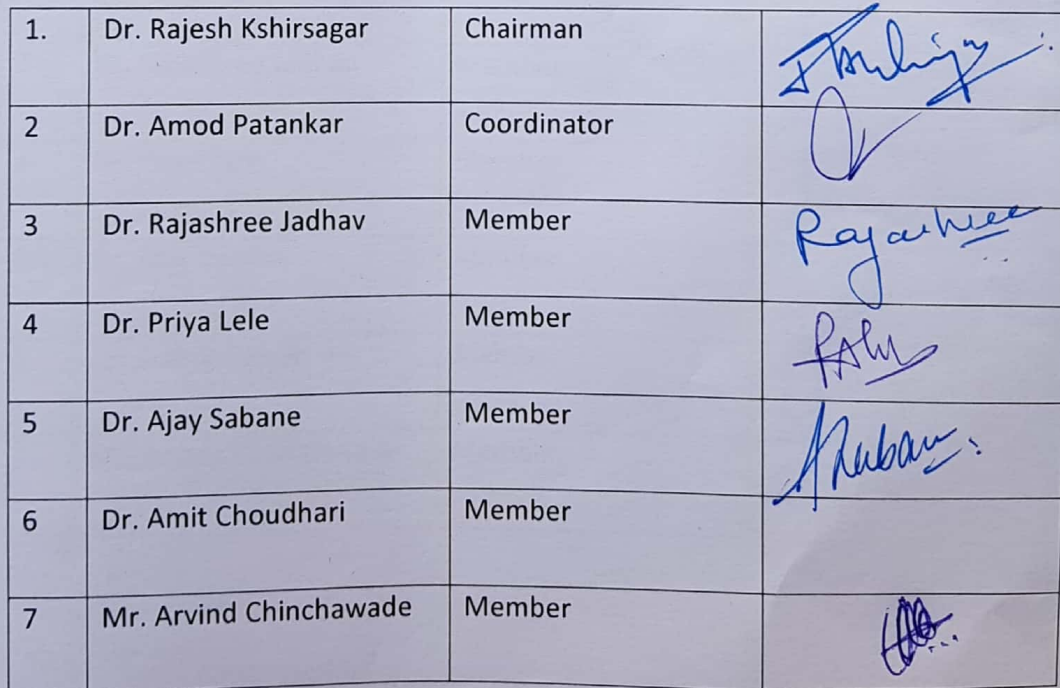 1. Dr. Rajesh Kshirsagar Chairman
2 Dr. Amod Patankar Coordinator
3 Dr. Rajashree Jadhav Member Rajashree
4 Dr. Priya Lele Member
5 Dr. Ajay Sabane Member
6 Dr. Amit Choudhari Member
7 Mr. Arvind Chinchawade Member